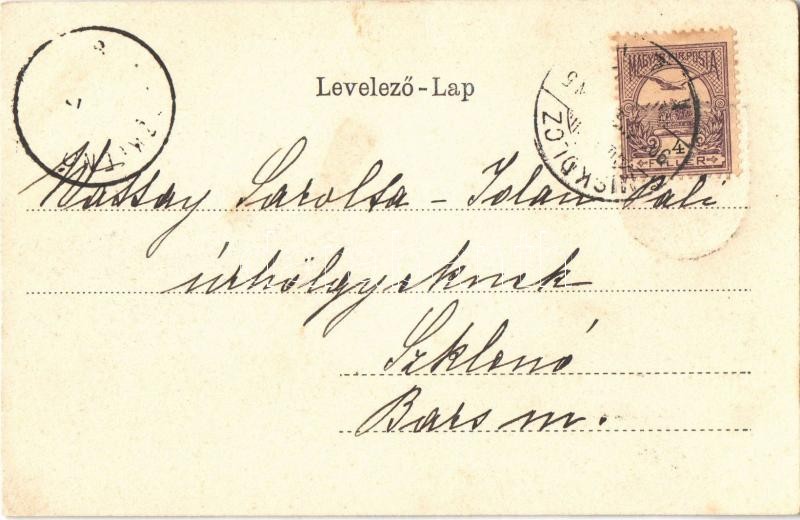 Levelező-Lap
MAGYAR KIR. POSTA
4
FILLÉR
MISKOLCZ
Wassay Sarolta - Jolán Pali
úrhölgyeknek
Szklenó
Bars m.